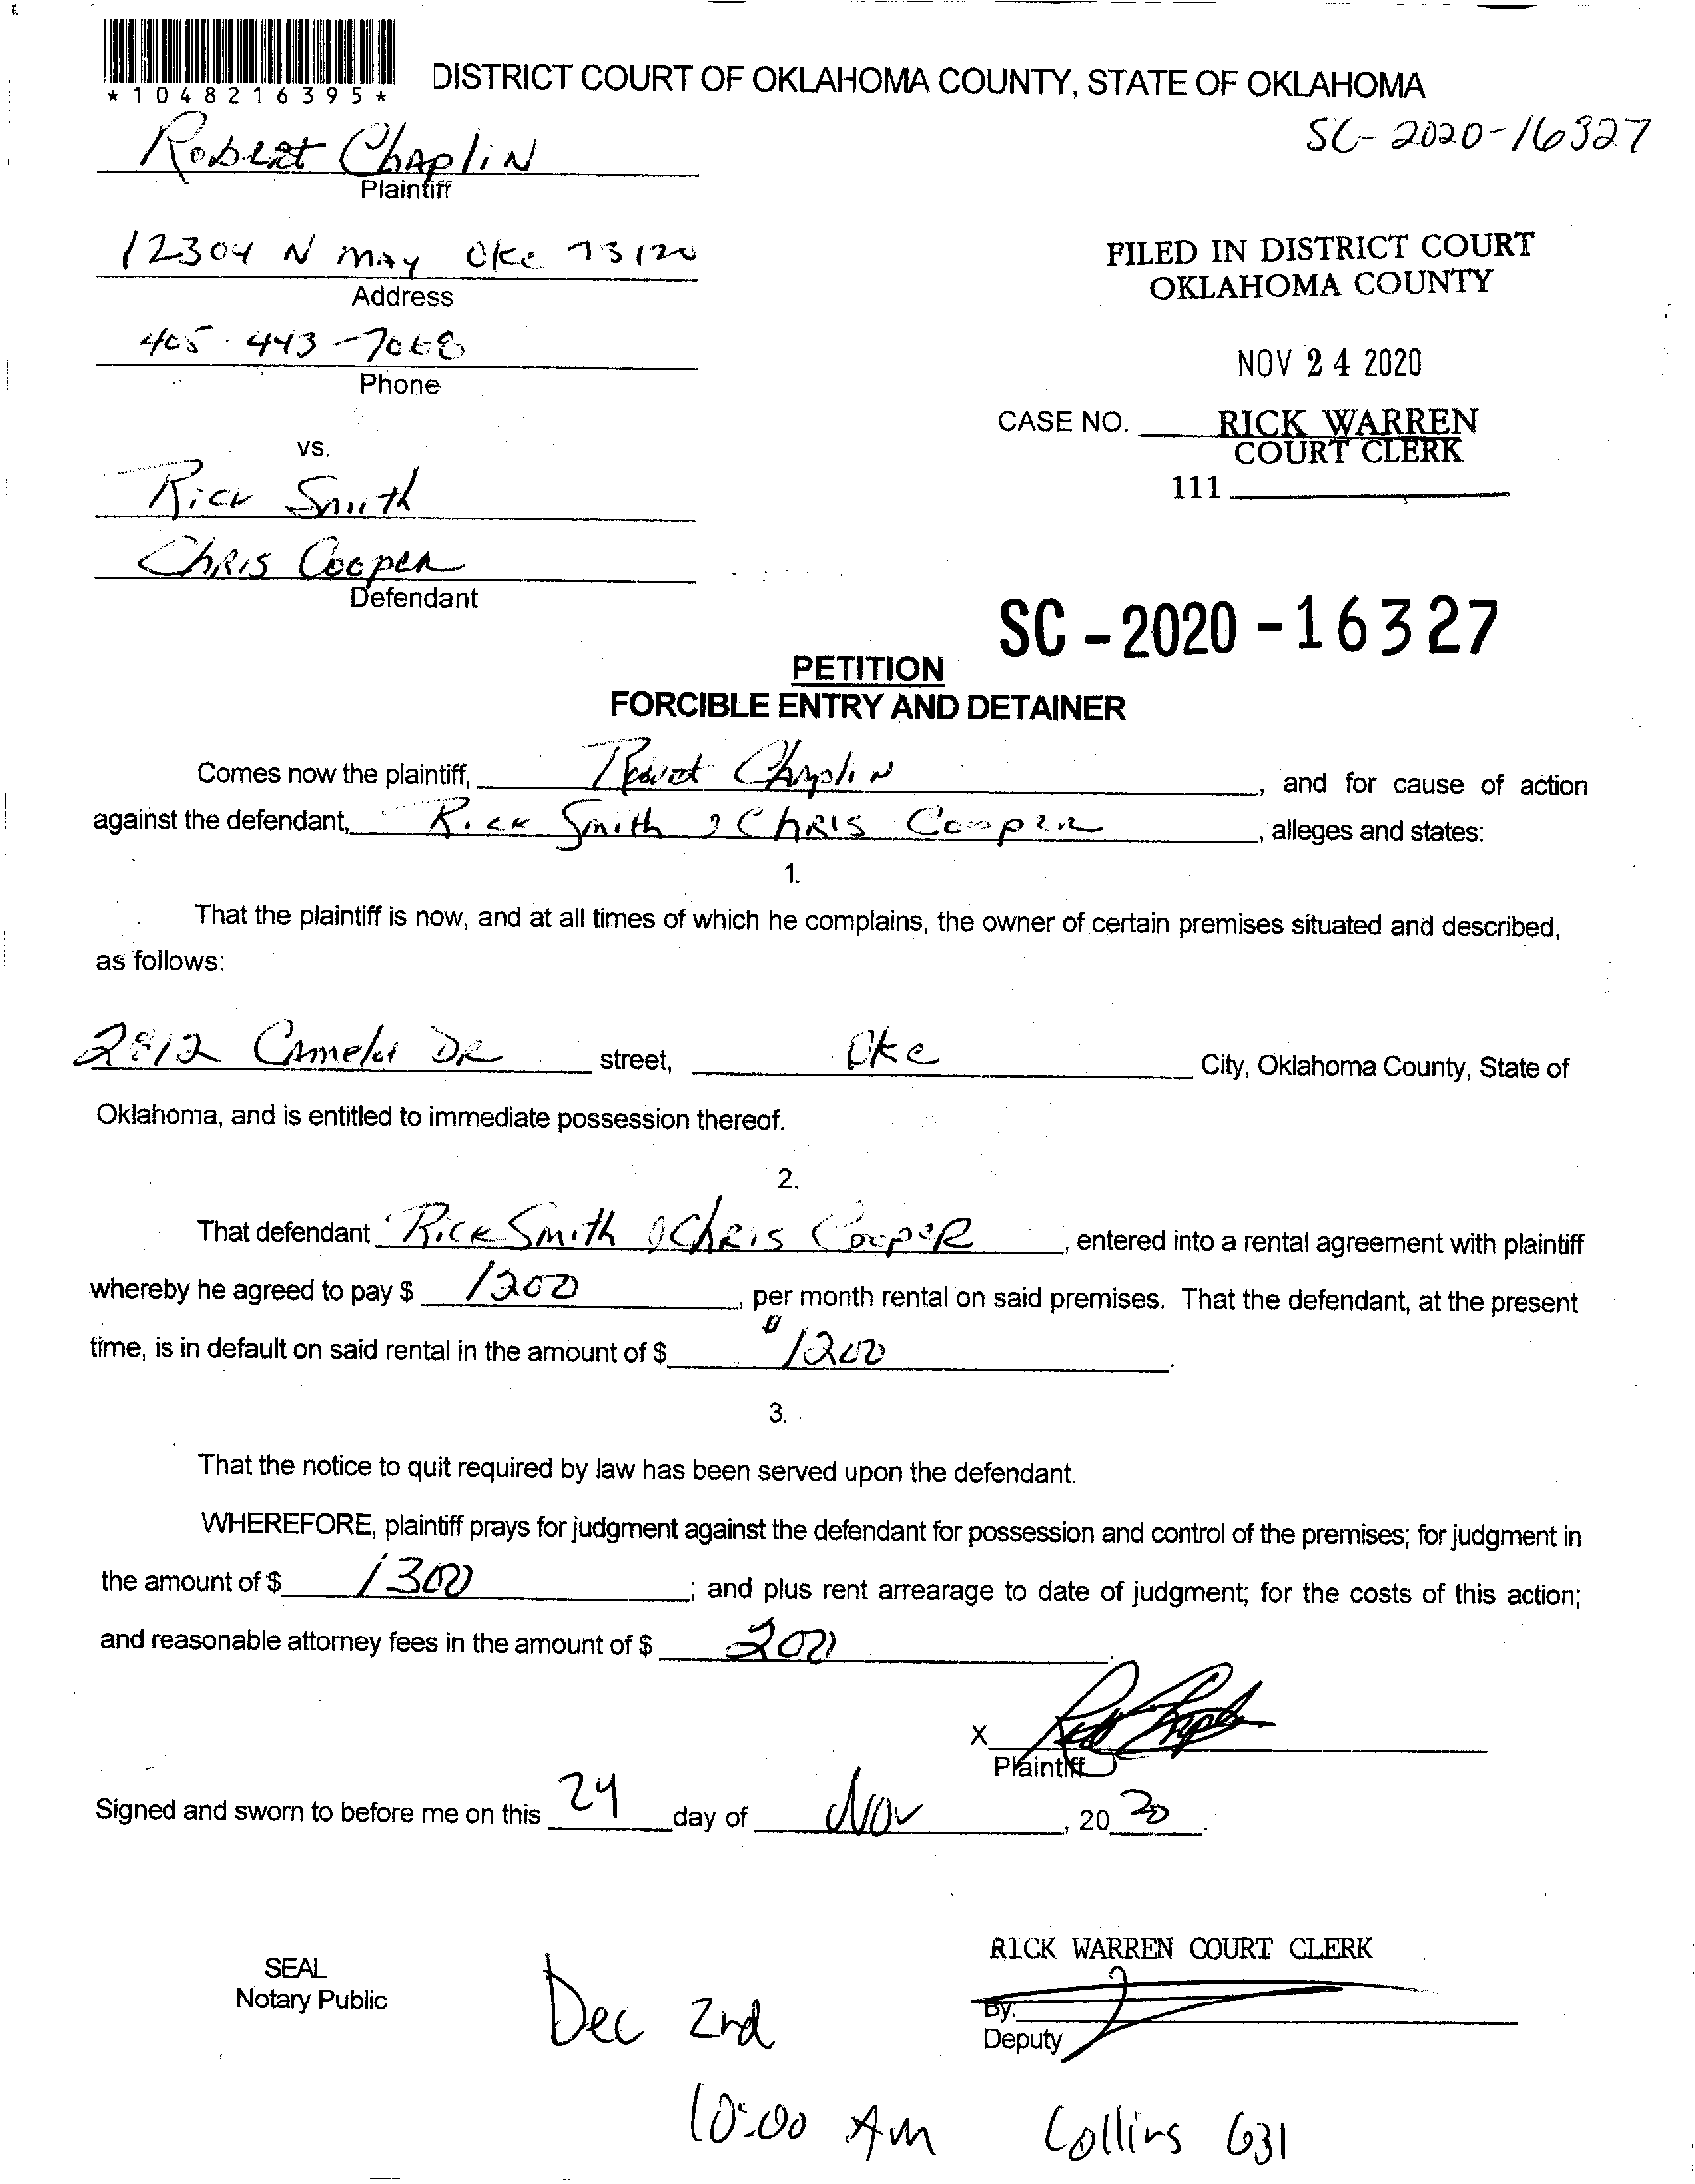 *1048216395*
DISTRICT COURT OF OKLAHOMA COUNTY, STATE OF OKLAHOMA
SC-2020-16327
Robert Chaplin
Plaintiff
12304 N May Okc 73120
Address
FILED IN DISTRICT COURT
OKLAHOMA COUNTY
405-443-7068
Phone
NOV 24 2020
CASE NO.
RICK WARREN
COURT CLERK
vs.
111
Rick Smith
Chris Cooper
Defendant
SC-2020-16327
PETITION
FORCIBLE ENTRY AND DETAINER
Comes now the plaintiff, Robert Chaplin, and for cause of action
against the defendant, Rick Smith & Chris Cooper, alleges and states:
1.
That the plaintiff is now, and at all times of which he complains, the owner of certain premises situated and described,
as follows:
2812 Camelot DR street, Okc City, Oklahoma County, State of
Oklahoma, and is entitled to immediate possession thereof.
2.
That defendant Rick Smith & Chris Cooper, entered into a rental agreement with plaintiff
whereby he agreed to pay $ 1200, per month rental on said premises. That the defendant, at the present
time, is in default on said rental in the amount of $ 1200.
3.
That the notice to quit required by law has been served upon the defendant.
WHEREFORE, plaintiff prays for judgment against the defendant for possession and control of the premises; for judgment in
the amount of $ 1300; and plus rent arrearage to date of judgment; for the costs of this action;
and reasonable attorney fees in the amount of $ 200.
X
Plaintiff
Signed and sworn to before me on this 24 day of Nov, 2020.
RICK WARREN COURT CLERK
SEAL
Notary Public
By:
Deputy
Dec 2nd
10:00 AM Collins 631